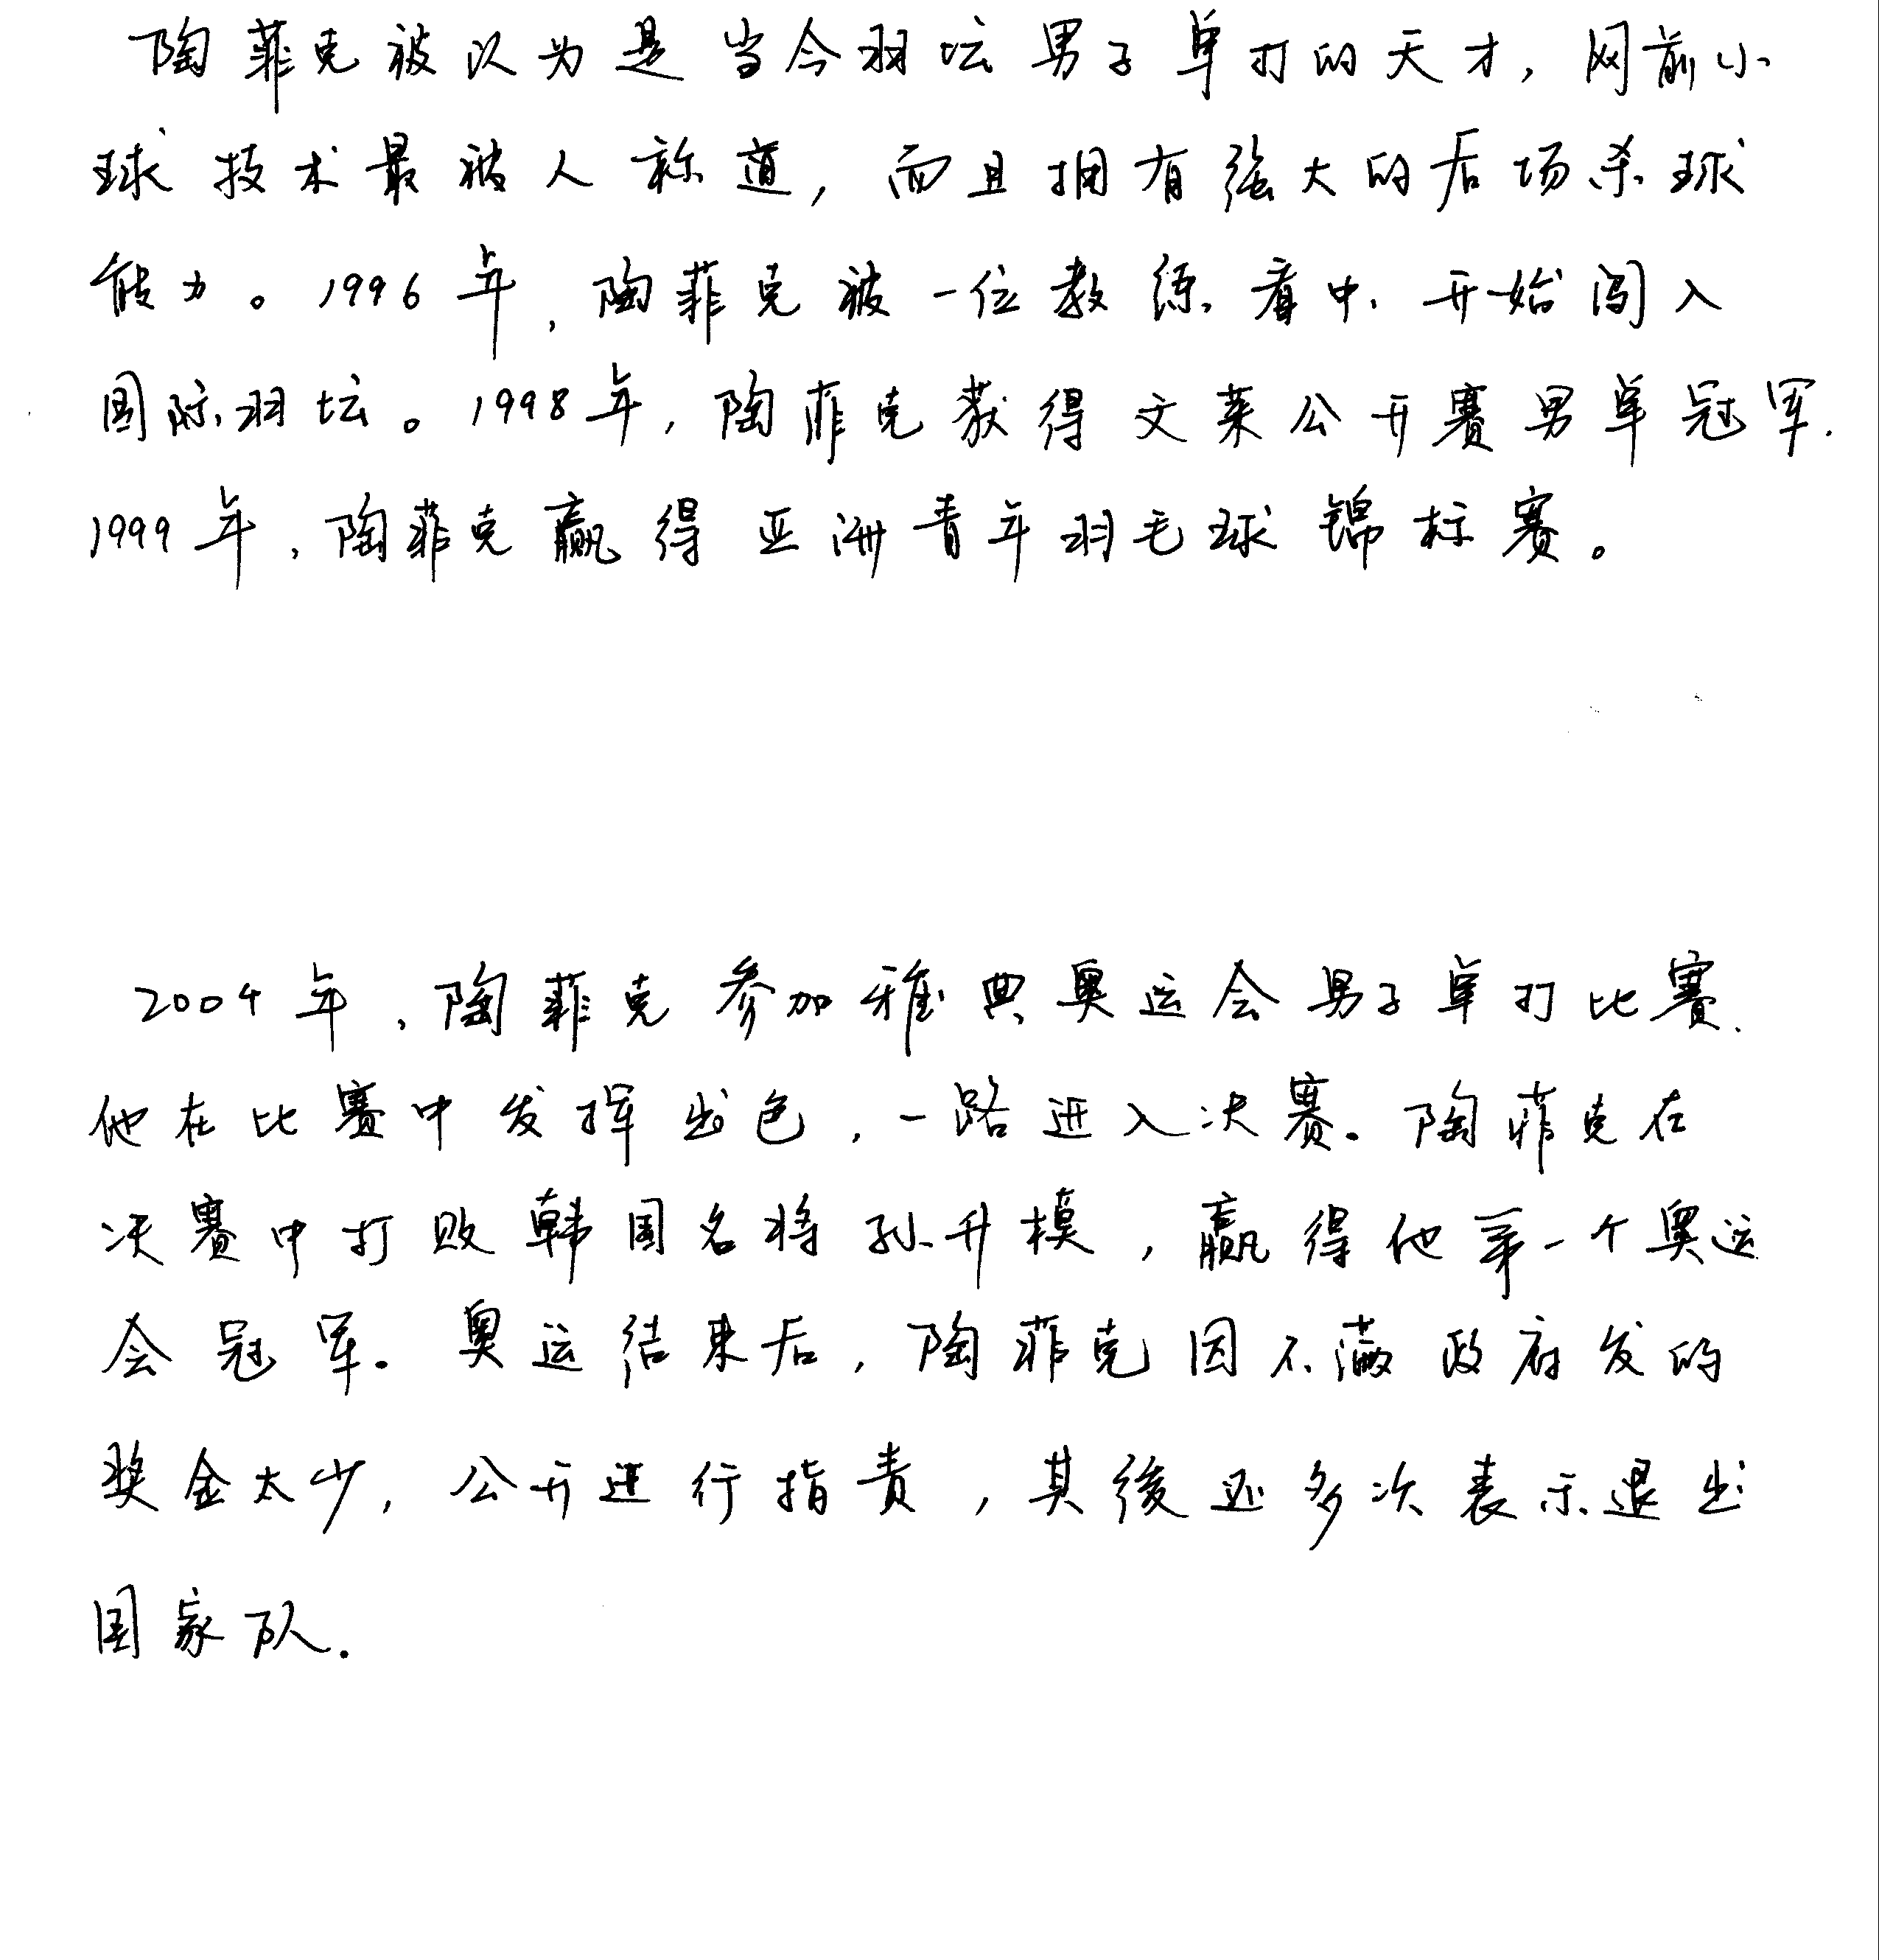 陶菲克被以为是当今羽坛男子单打的天才，网前小
球技术最被人称道，而且拥有强大的后场杀球
能力。1996年，陶菲克被一位教练看中，开始闯入
国际羽坛。1998年，陶菲克获得文莱公开赛男单冠军.
1999年，陶菲克赢得亚洲青年羽毛球锦标赛。
2004年，陶菲克参加雅典奥运会男子单打比赛.
他在比赛中发挥出色，一路进入决赛。陶菲克在
决赛中打败韩国名将孙升模，赢得他第一个奥运
会冠军。奥运结束后，陶菲克因不满政府发的
奖金太少，公开进行指责，其後还多次表示退出
国家队.